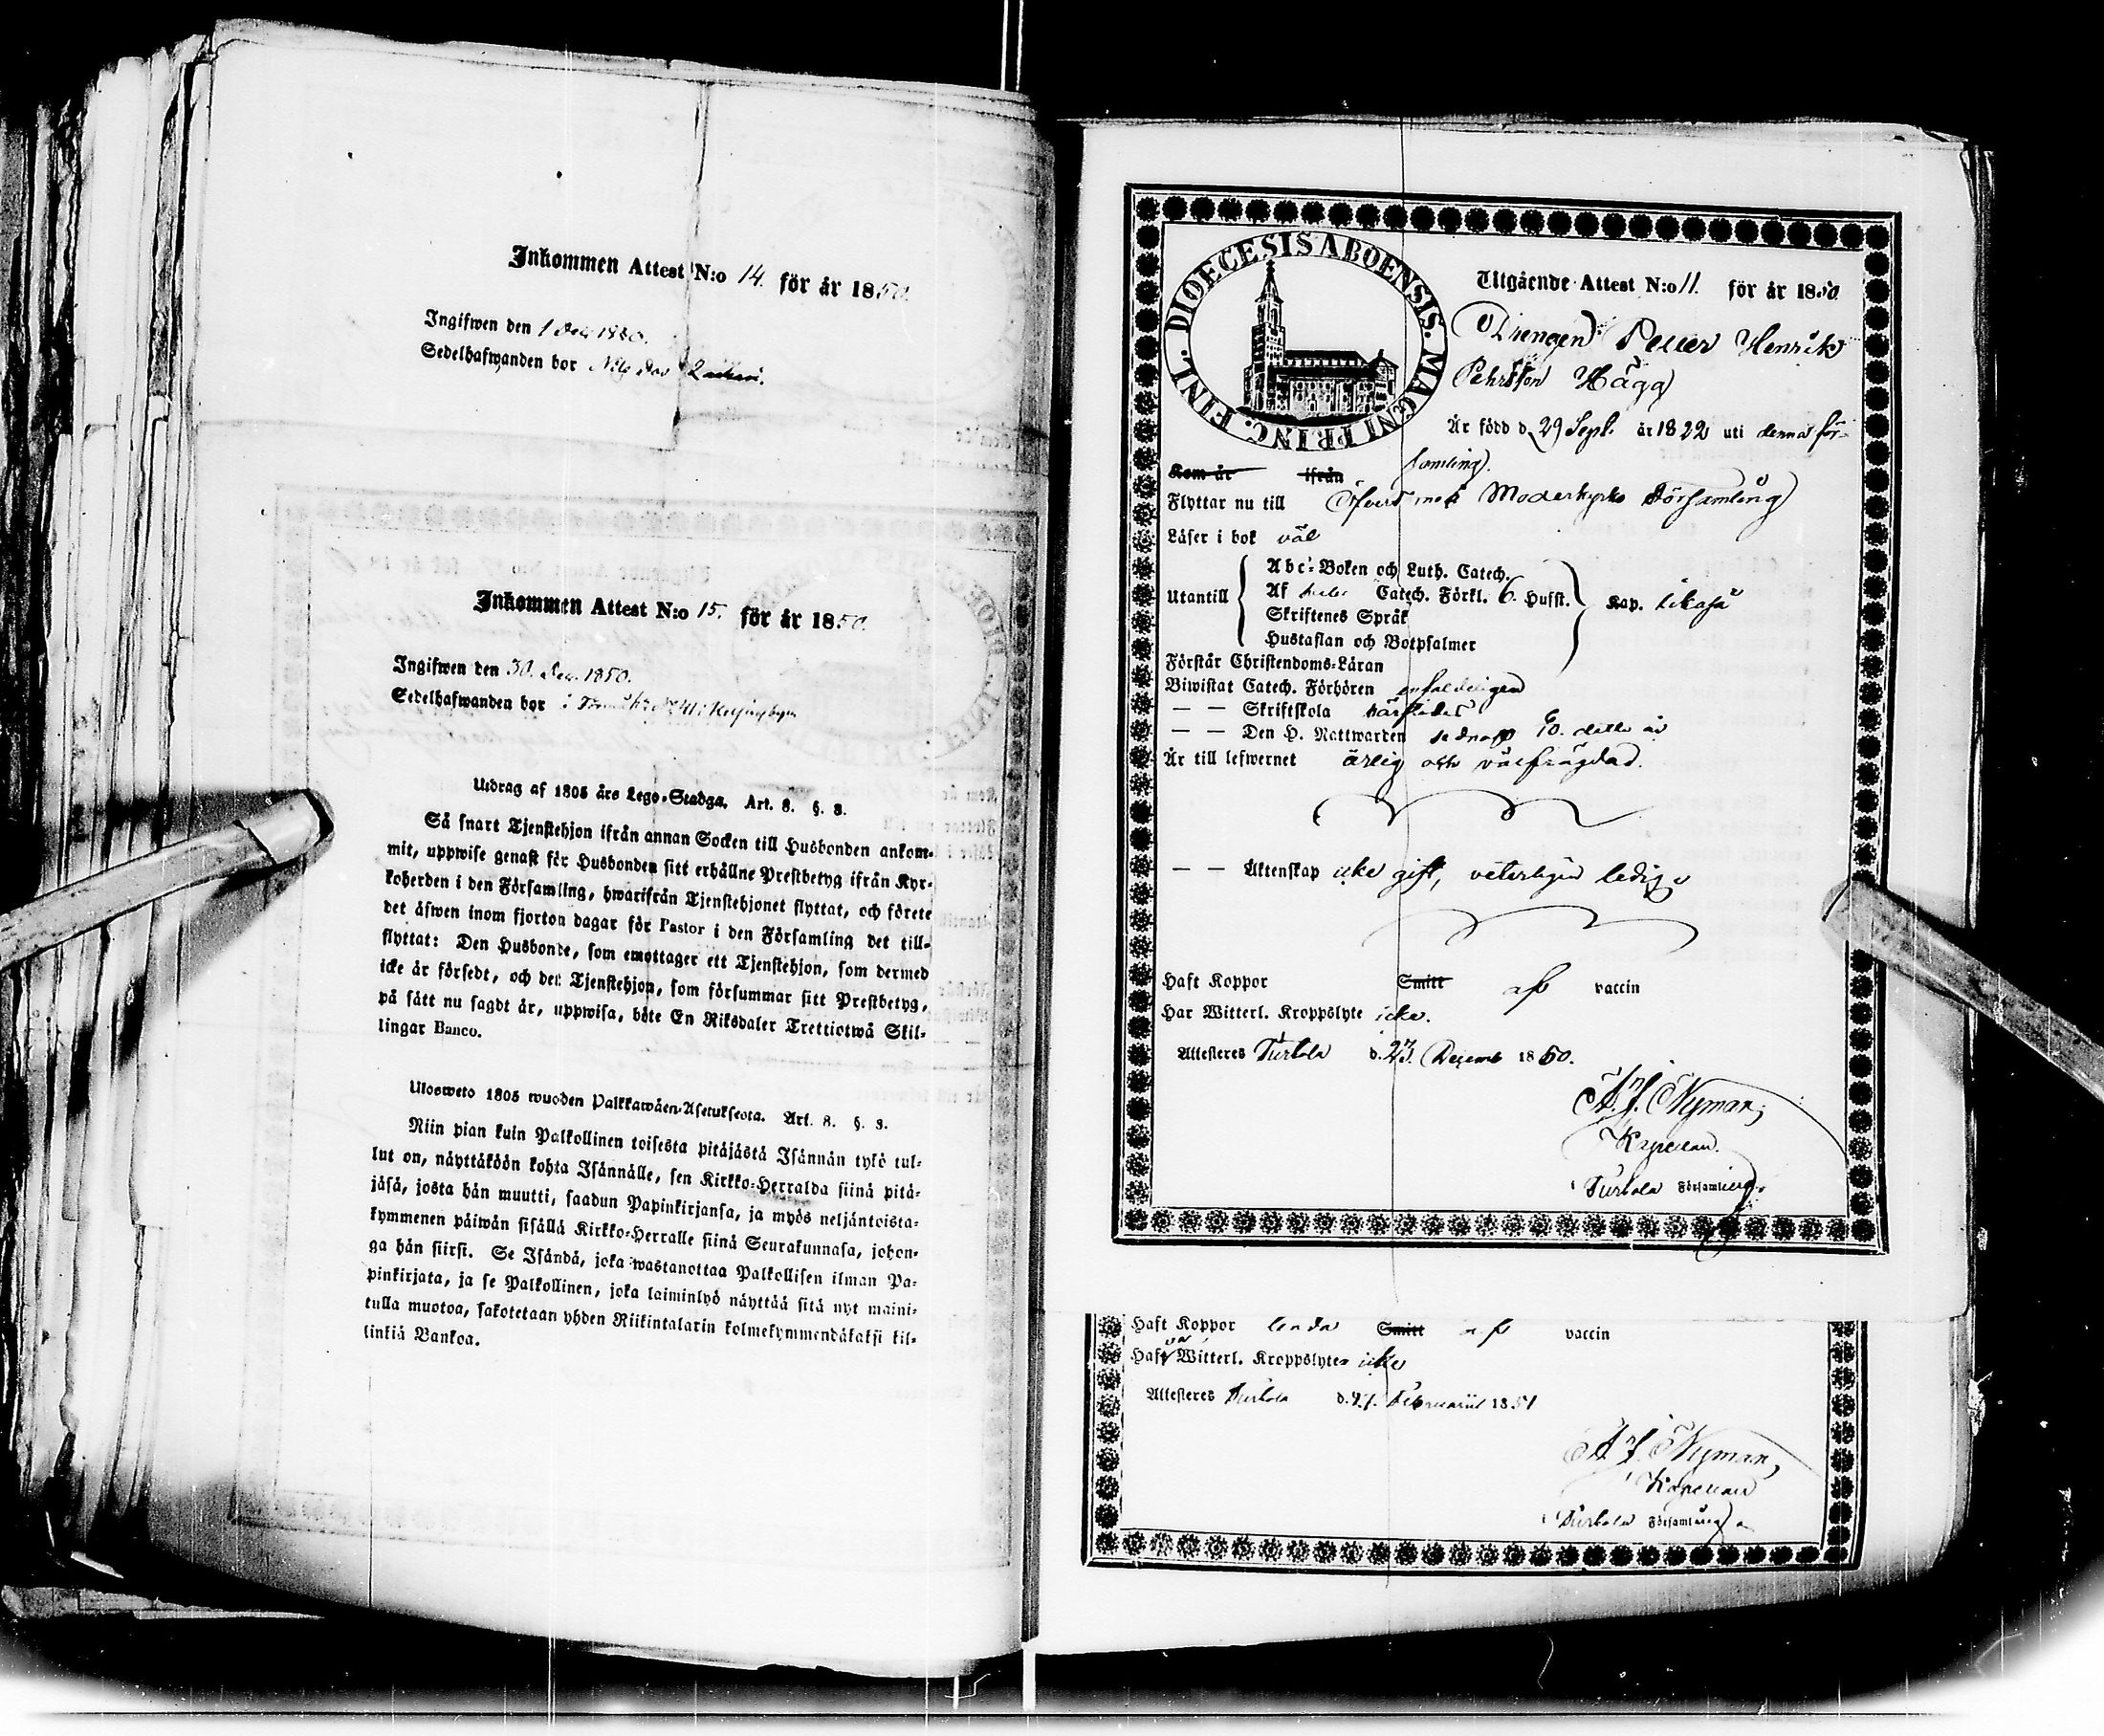 Inkommen Attest N:o 14. för år 1850.
Ingifwen den 1 Dec. 1850.
Sedelhafwanden bor
Inkommen Attest N:o 15. för år 1850.
Ingifwen den 30. Dec. 1850.
Sedelhafwanden bor i
Utdrag af 1805 års Lego-Stadga. Art. 8. §. 3.
Så snart Tjenstehjon ifrån annan Socken till Husbonden ankom-
mit, uppwise genast för Husbonden sitt erhållne Prestbetyg ifrån Kyr-
koherden i den Församling, hwarifrån Tjenstehjonet flyttat, och förete
det äfwen inom fjorton dagar för Pastor i den Församling det till-
flyttat: Den Husbonde, som emottager ett Tjenstehjon, som dermed
icke är försedt, och det Tjenstehjon, som försummar sitt Prestbetyg,
på sätt nu sagdt är, uppwisa, böte En Riksdaler Trettiotwå Skil-
lingar Banco.
Ulosweto 1805 wuoden Palkkawäen-Asetuksesta. Art. 8. §. 3.
Niin pian kuin Palkollinen toisesta pitäjästä Isännän tykö tul-
lut on, näyttäköön kohta Isännälle, sen Kirkko-Herralda siinä pitä-
jäsä, josta hän muutti, saadun Papinkirjansa, ja myös neljäntoista-
kymmenen päiwän sisällä Kirkko-Herralle siinä Seurakunnasa, johon-
ga hän siirsi. Se Isändä, joka wastanottaa Palkollisen ilman Pa-
pinkirjata, ja se Palkollinen, joka laiminlyö näyttää sitä nyt maini-
tulla muotoa, sakotetaan yhden Riikintalarin kolmekymmendäkaksi kil-
linkiä Bankoa.
DIOECESIS ABOENSIS. MAGNI PRINC. FINL.
Utgående Attest N:o 11. för år 1850
Drengen Petter Henrik
Pehrsson Hägg
Är född d. 29 Sept. år 1822 uti denna för-
samling.
Kom år ifrån
Flyttar nu till Öfvertorneå Moderkyrko Församling
Läser i bok väl
Utantill
Abc-Boken och Luth. Catech.
Af Catech. Förkl. 6. Hufst.
Skriftenes Språk
Hustaflan och Botpsalmer
Kap. likaså
Förstår Christendoms-Läran
Biwistat Catech. Förhören enfaldeligen
— — Skriftskola härstädes
— — Den H. Nattwarden sednast 10. detta år
Är till lefwernet ärlig och välfrägdad.
— — Äktenskap icke gift, veterligen ledig
Haft Koppor Smitt af vaccin
Har Witterl. Kroppslyte icke.
Attesteres Turtola d. 23. Decemb 1850.
A. J. Nyman,
Kapellan
i Turtola Församling
Haft Koppor Smitt af vaccin
Haft Witterl. Kroppslyte icke
Attesteres Turtola d. 27. Februarii 1851
A. J. Nyman,
Kapellan
i Turtola Församling